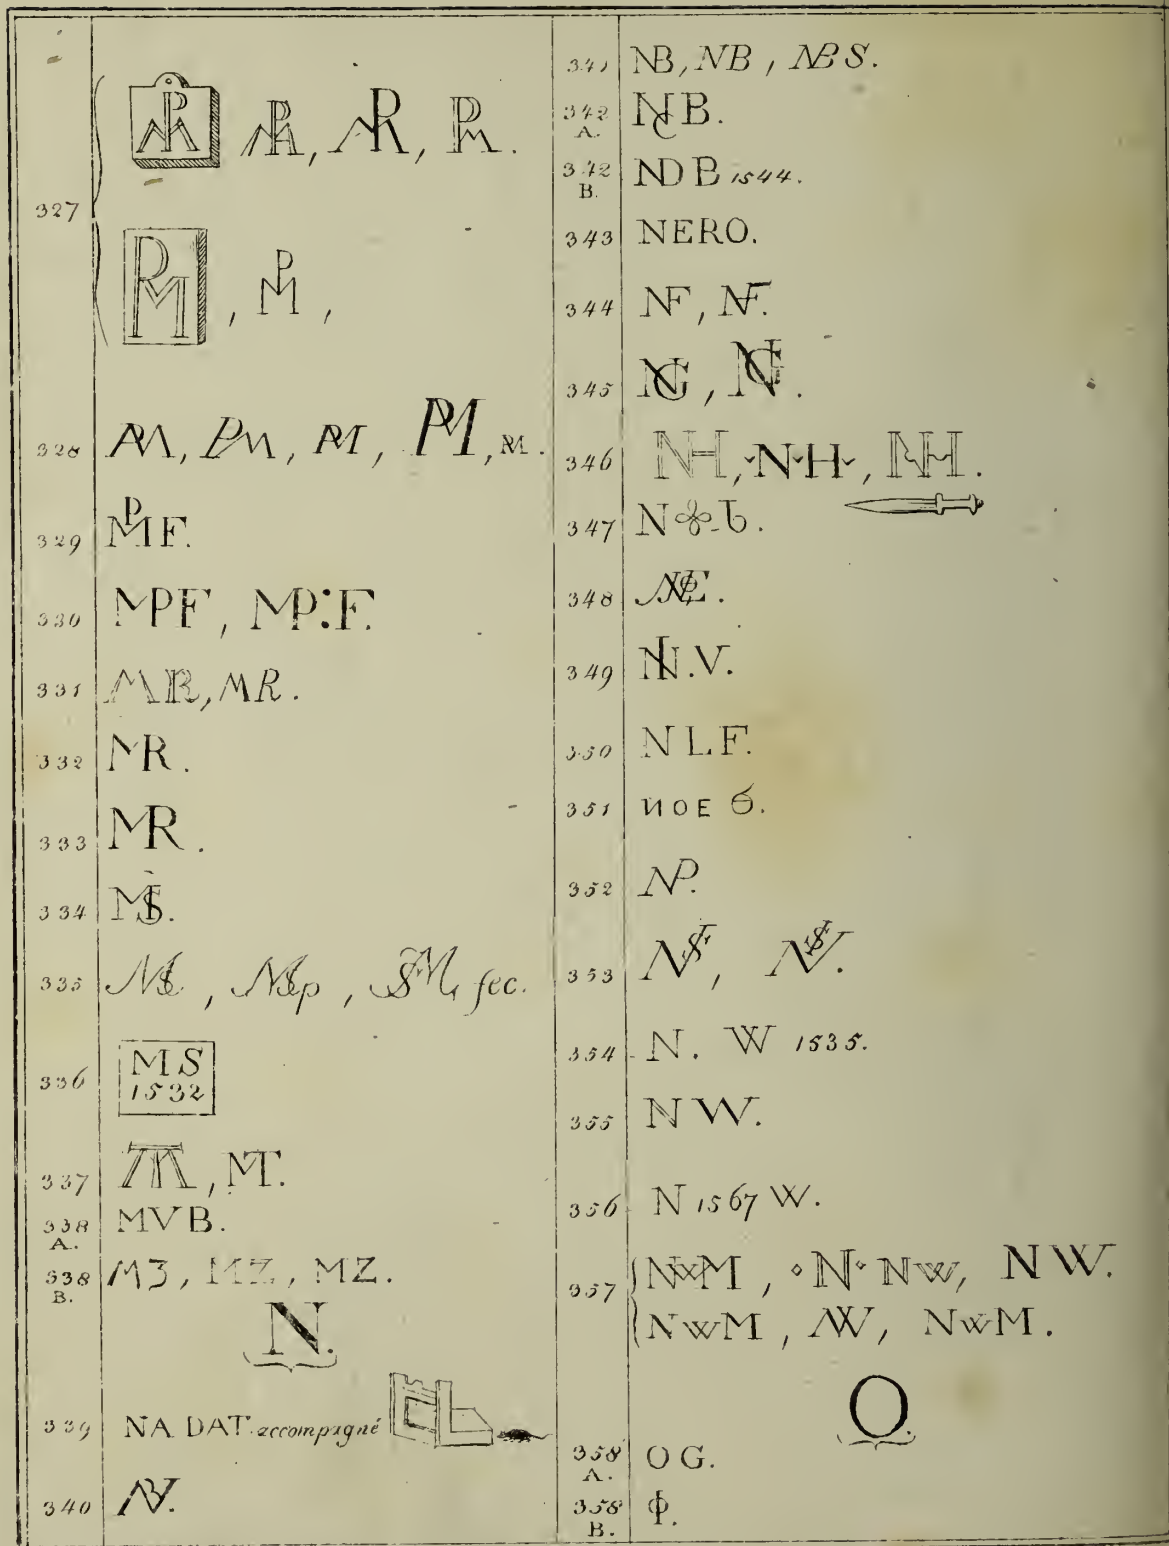 327
328
329 MPF.
330 MPF, MP:F.
331 MR, MR.
332 MR.
333 MR.
334 MS.
335 fec.
336 MS
1532
337 MT.
338 A. MVB.
338 B. M3, MZ, MZ.
N.
339 NA DAT accompagné
340
341 NB, NB, NBS.
342 A. NCB.
342 B. NDB 1544.
343 NERO.
344 NF, NF.
345 NG, NG.
346 NH, N·H, NH.
347
348
349
350 NLF.
351 ИOE 6.
352 NP.
353
354 N. W 1535.
355 NW.
356 N 1567 W.
357 NWM, ⋄N⋄NW, NW.
NwM, NW, NwM.
O.
358 A. OG.
358 B. φ.